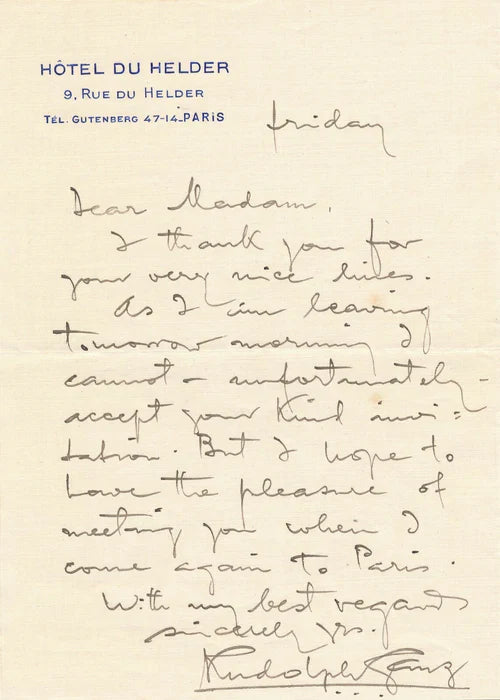 HÔTEL DU HELDER
9, RUE DU HELDER
TÉL. GUTENBERG 47-14_PARIS
Friday
Dear Madam,
I thank you for
your very nice lines.
As I am leaving
tomorrow morning I
cannot - unfortunately -
accept your kind invi =
tation. But I hope to
have the pleasure of
meeting you when I
come again to Paris.
With my best regards
sincerely yrs.
Rudolph Ganz